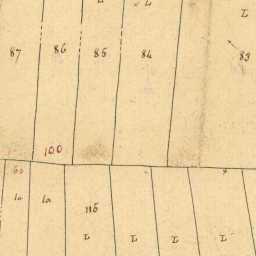 L L L
87 86 85 84 89
100
60
la la 116
L L L L